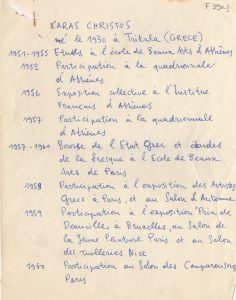 F 320.1
KARAS CHRISTOS
né le 1930 à Trikala (GRECE)
1951-1955 Etudes à l'école de Beaux Arts d'Athènes
1952 Participation à la quadriennale d'
Athènes
1956 Exposition collective à l'Institue
Français d'Athènes
1957 Participation à la quadriennale
d'Athènes
1957-1960 Bourse de l'Etat Grec et études
de la fresque à l'Ecole de Beaux
Arts de Paris
1958 Participation à l'exposition des Artistes
Grecs a Paris et au Salon d'Automne
1959 Participation à l'exposition Prix de
Deauville, à Bruxelles, au Salon de
la Jeune Peinture Paris et au Salon
des Tuilleries Nice
1960 Participation au Salon des Comparaisons
Paris